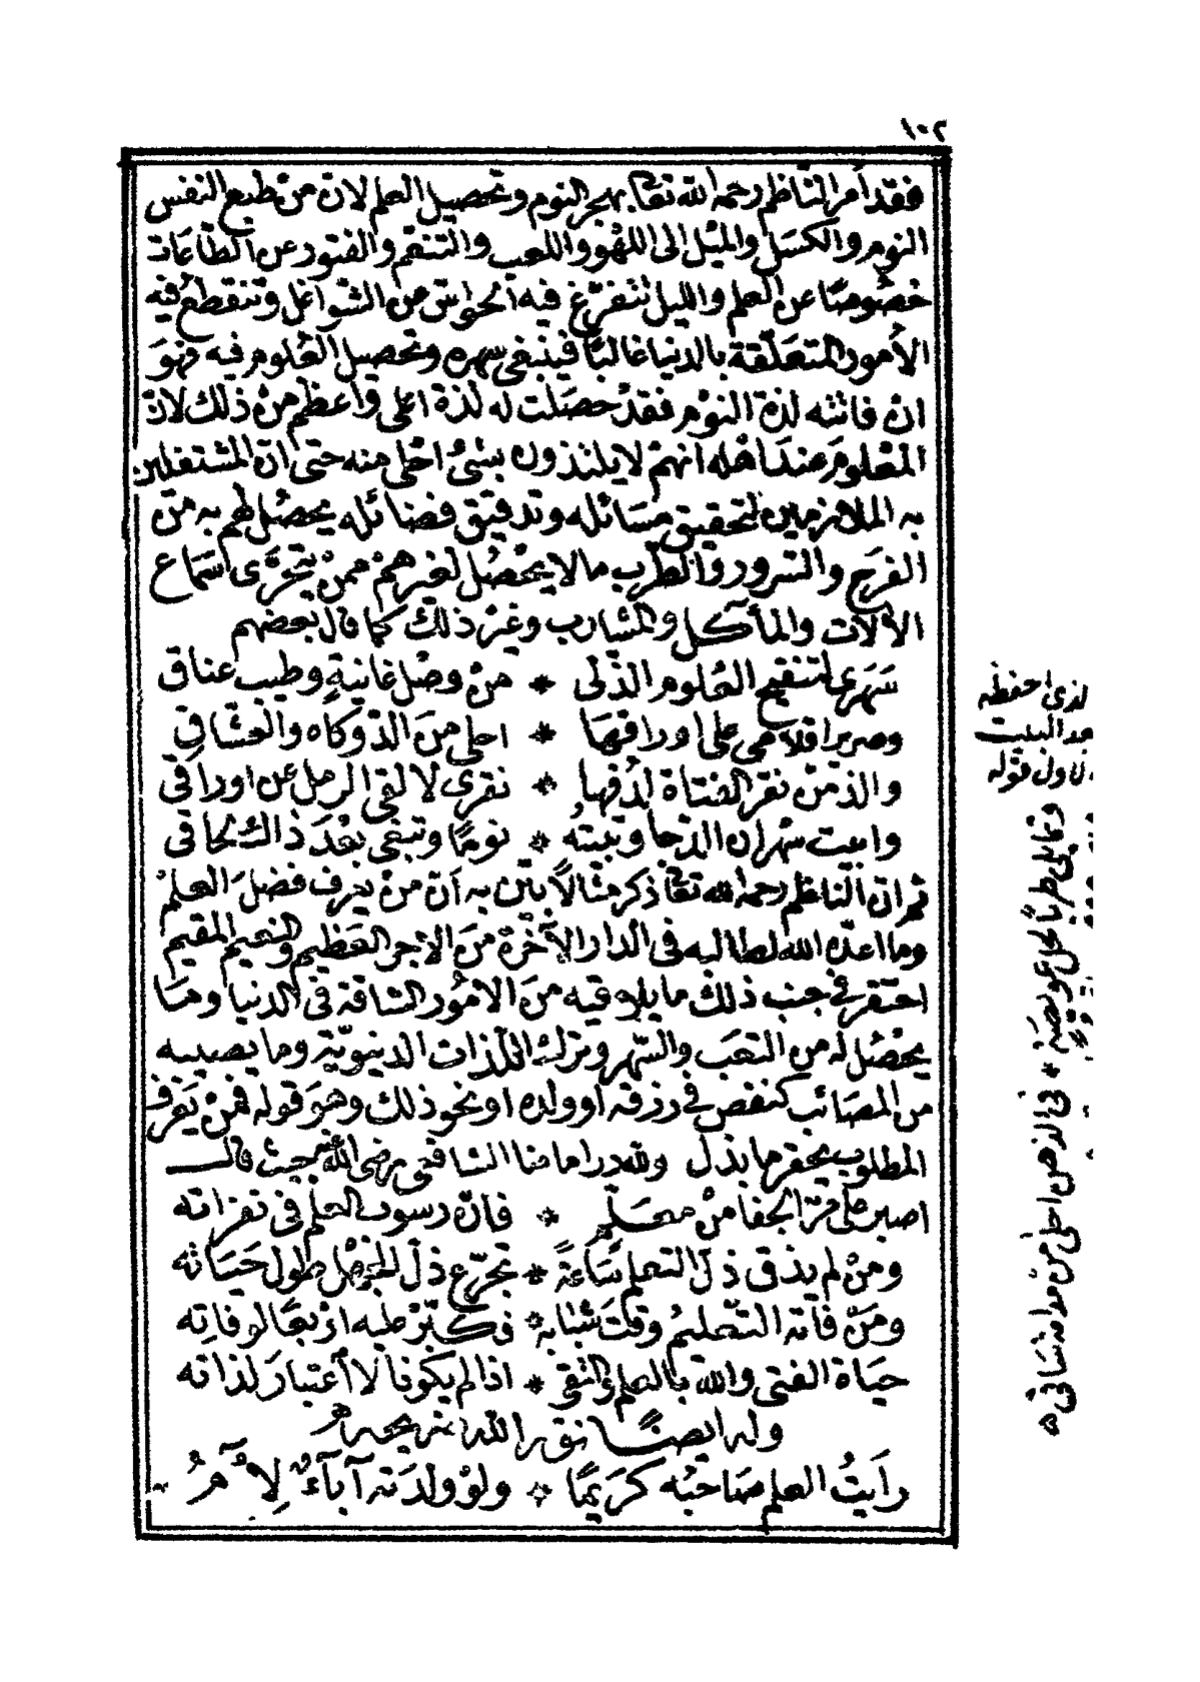 ١٠٢
فقد أمر الناظم رحمه الله تعالى بهجر النوم وتحصيل العلم لان من طبع النفس
النوم والكسل والميل الى اللهو واللعب والتنعم والفتور عن الطاعات
خصوصًا عن العلم والليل تتفرّغ فيه الحواس من الشواغل وتنقطع فيه
الأمور المتعلّقة بالدنيا غالبًا فينبغى سهره وتحصيل العلوم فيه فهو
ان فاتته لذة النوم فقد حصلت له لذة اعلى واعظم من ذلك لان
المعلوم عند اهله انهم لا يلتذون بشئ احلى منه حتى ان المشتغلين
به الملازمين لتحقيق مسائله وتدقيق فضائله يحصل لهم به من
الفرح والسرور والطرب ما لا يحصل لغيرهم ممن يتحرّى اسماع
الآلات والمآكل والمشارب وغير ذلك كما قال بعضهم
سهرى لتنقيح العلوم الذ لى * من وصل غانية وطيب عناق
وصرير اقلامى على اوراقها * احلى من الدوكاه والعشاق
والذ من نقر الفتاة لدفها * نقرى لالقى الرمل عن اوراقى
وابيت سهران الدجا وتبيته * نومًا وتبغى بعد ذاك لحاقى
ثم ان الناظم رحمه الله تعالى ذكر مثالًا بيّن به أن من يعرف فضل العلم
وما اعدّه الله لطالبه فى الدار الآخرة من الاجر العظيم والنعيم المقيم
احتقر فى جنب ذلك ما يلاقيه من الامور الشاقة فى الدنيا وما
يحصل له من التعب والسهر وترك اللذات الدنيويّة وما يصيبه
من المصائب كنقص فى رزقه او ولده او نحو ذلك وهو قوله فمن يعرف
المطلوب يحقر ما بذل ولله در امامنا الشافعى رضى الله عنه حيث قال
اصبر على مرّ الجفا من معلم * فانّ رسوب العلم فى نفراته
ومن لم يذق ذلّ التعلم ساعةً * تجرّع ذلّ الجهل طول حياته
ومن فاته التعليم وقت شبابه * فكبّر عليه اربعًا لوفاته
حياة الفتى والله بالعلم والتقى * اذا لم يكونا لا اعتبار لذاته
وله ايضًا نور الله ضريحه
رايتُ العلم صاحبُه كريمًا * ولو ولدته آباءٌ لِئامُ
لذى احفظه
بعد البيت
الاول قوله
وتمايلى طربًا لحل عويصة * فى الذهن احلى من مدامة ساقى